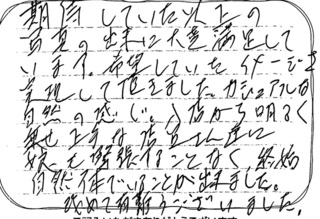 期待していた以上の
写真の出来に大意満足して
います。希望していたイメージを
実現して頂きました。カジュアルな
自然の感じ。入店から明るく
乗せ上手な店員さん達に
娘も緊張することなく 終始
自然体でいることが出来ました。
改めて有難うございました。